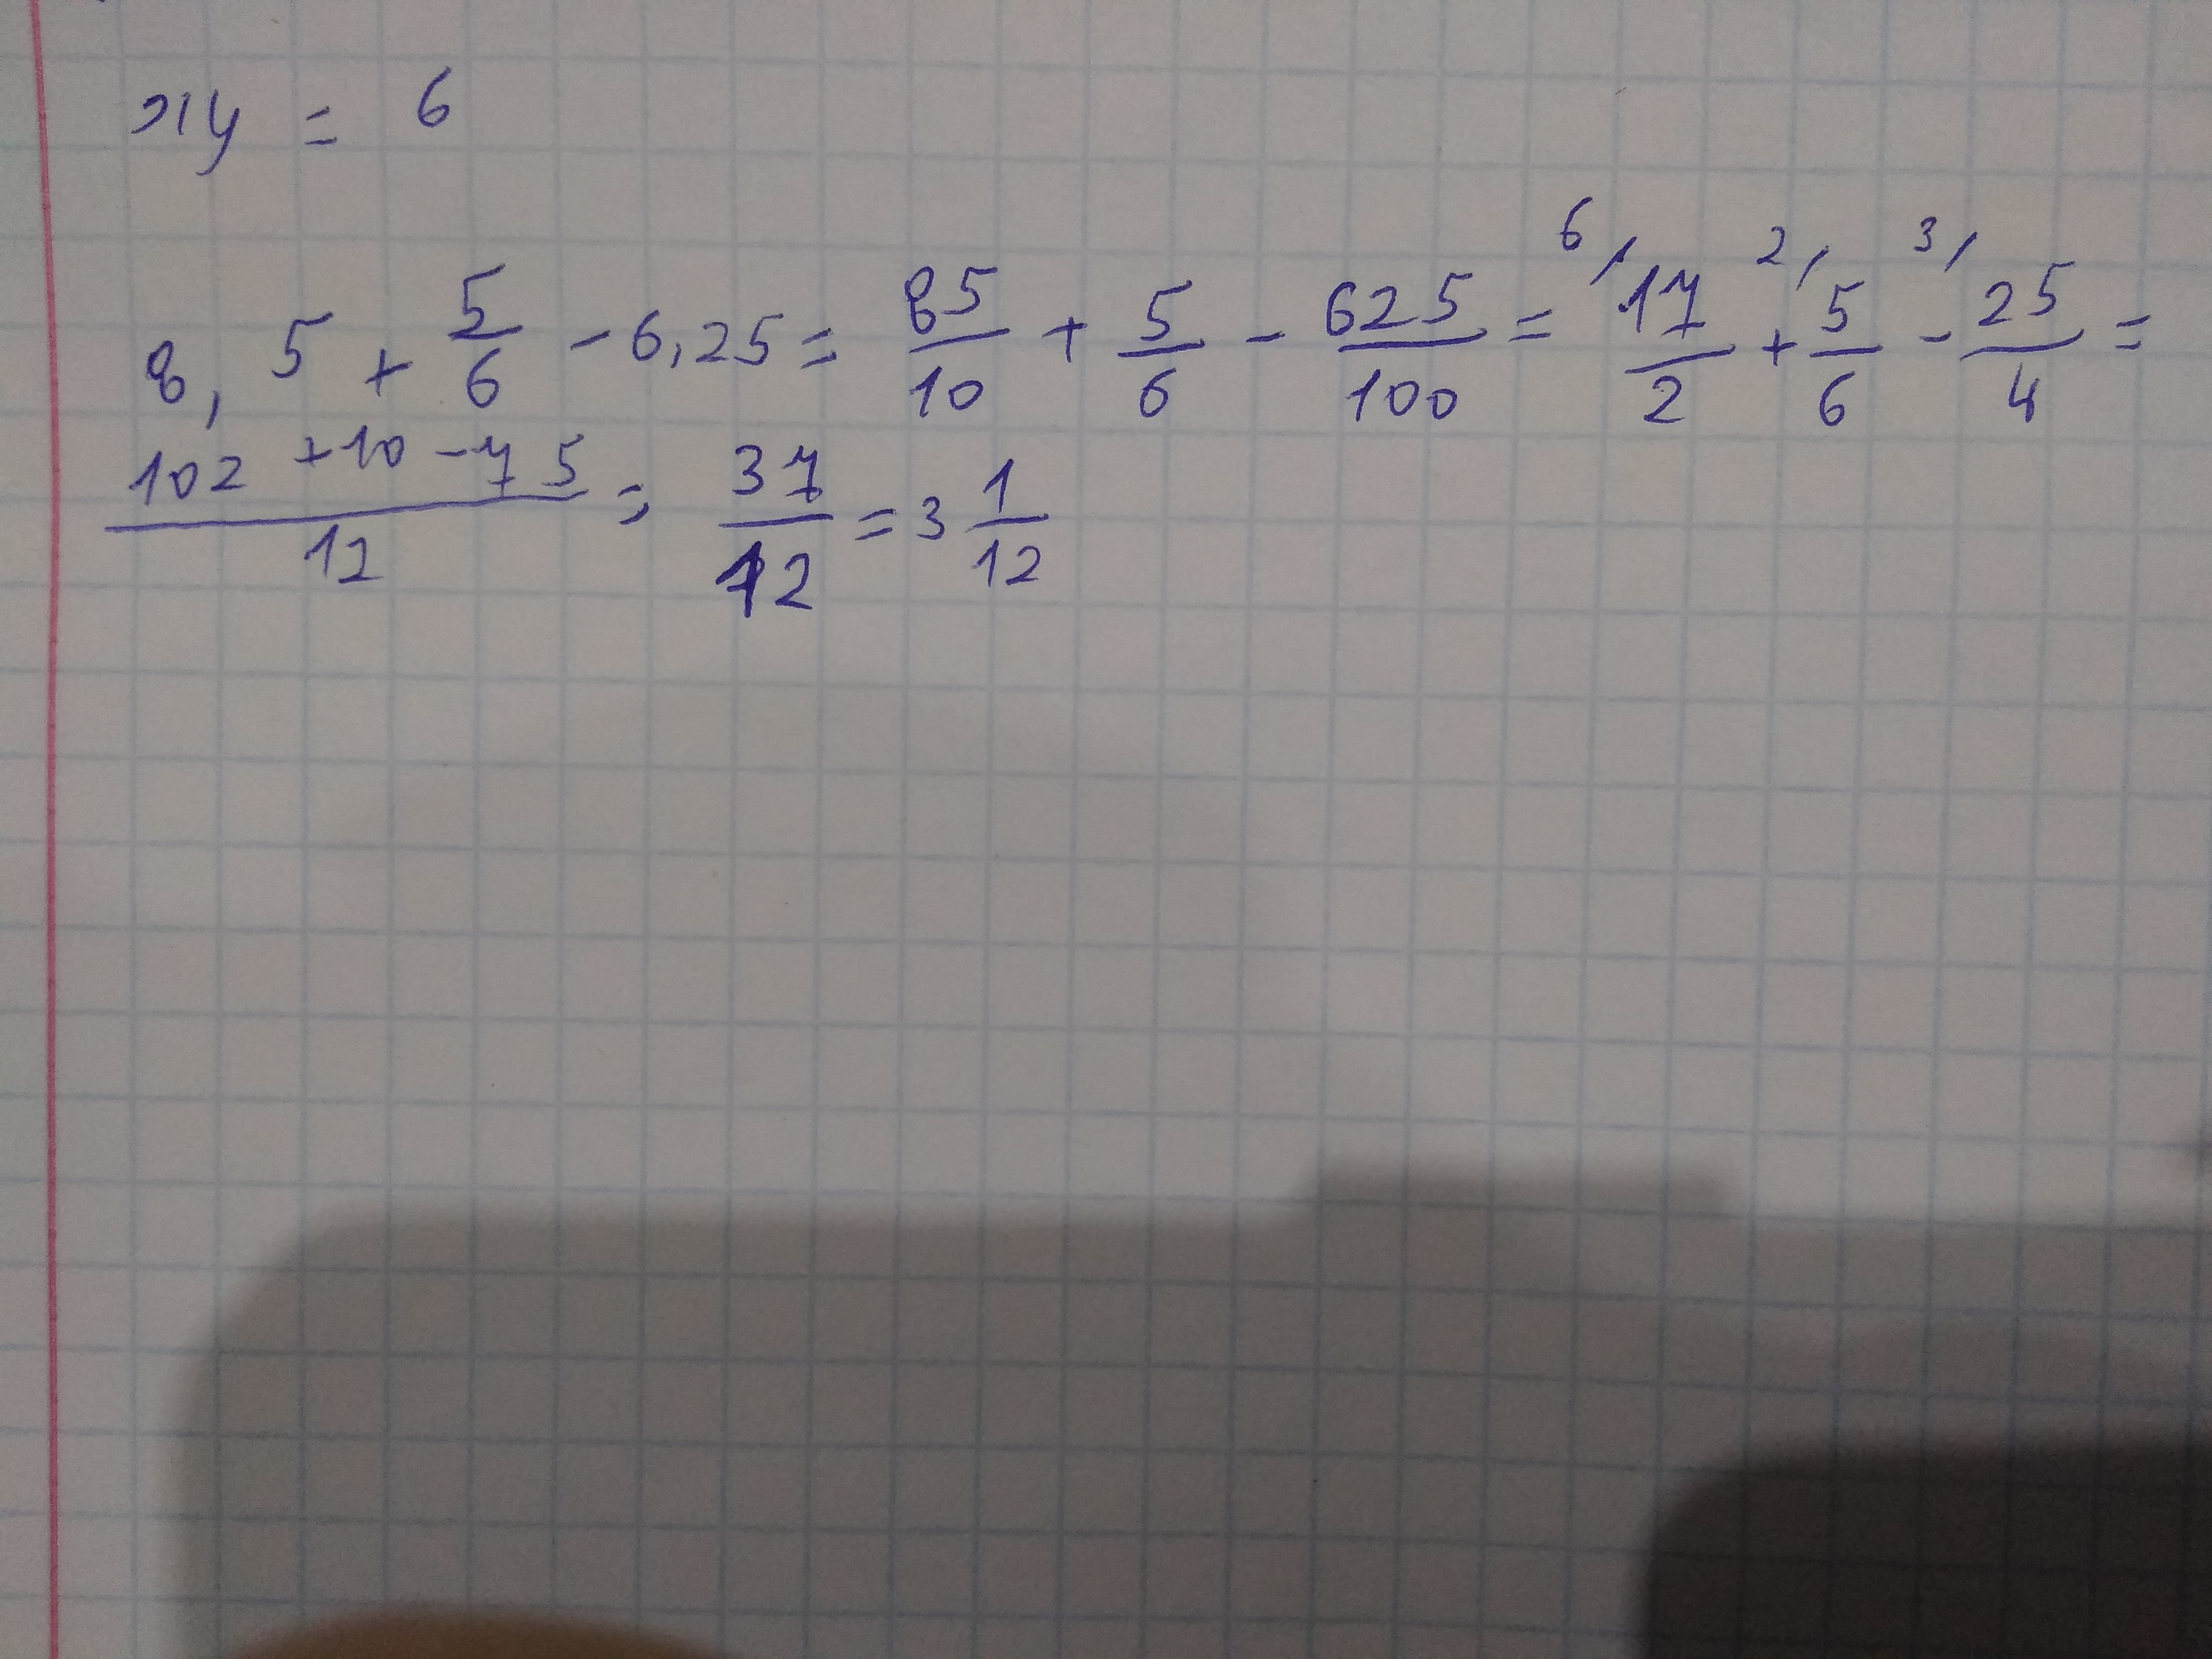 xy = 6
8,5 + 5/6 - 6,25 = 85/10 + 5/6 - 625/100 = 6/ 17/2 + 2/ 5/6 - 3/ 25/4 =
102 + 10 - 75 / 12 = 37/12 = 3 1/12